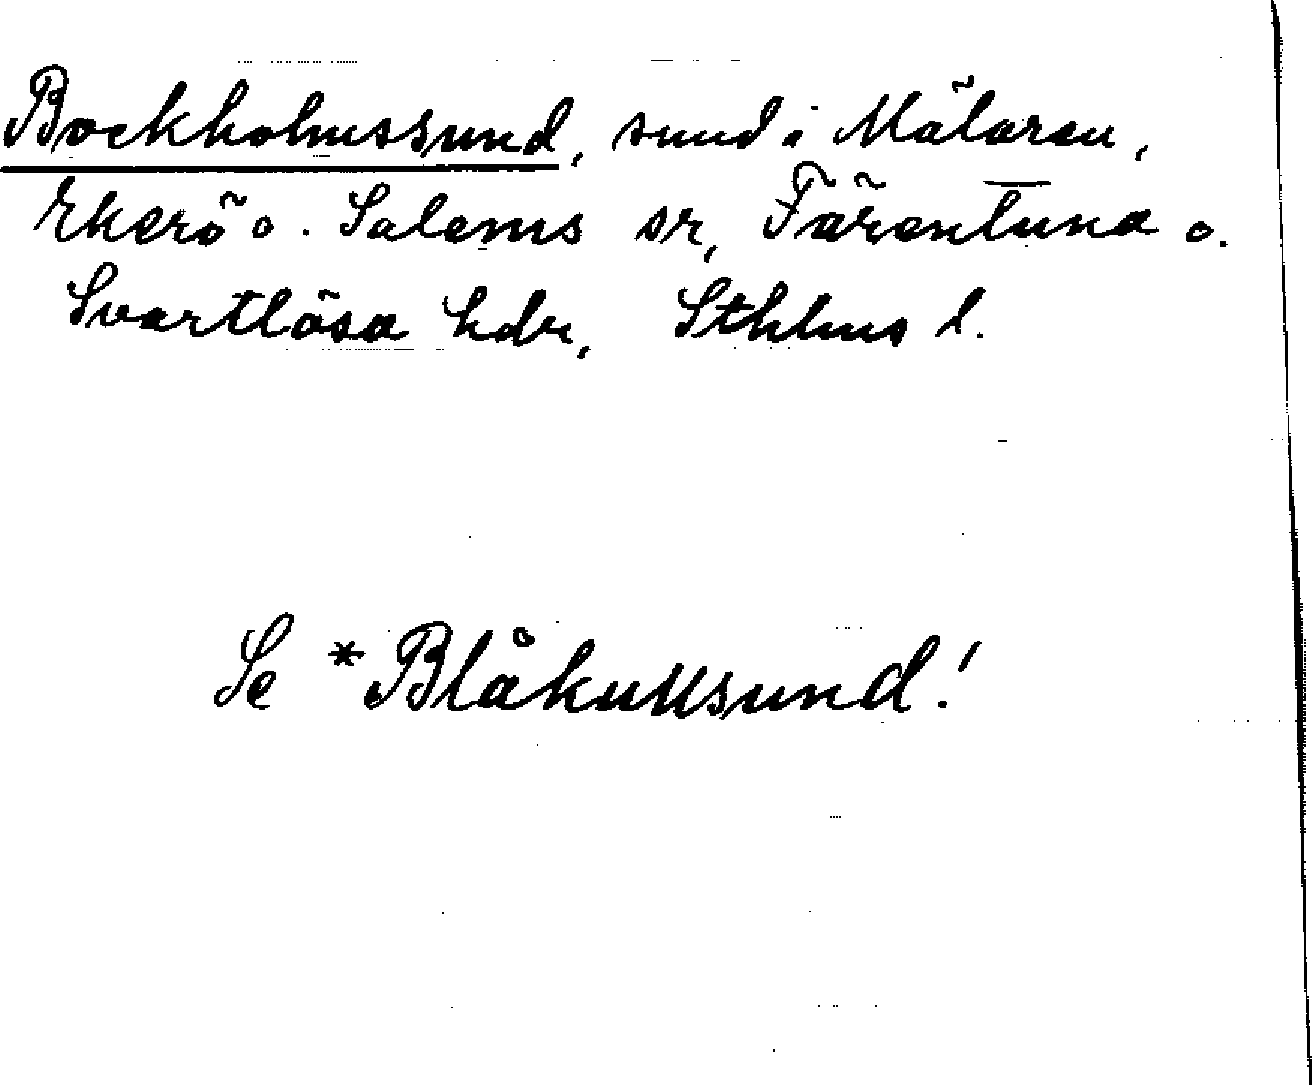 Bockholmssund, sund i Mälaren,
Ekerö o. Salems sr, Färentuna o.
Svartlösa hdr, Sthlms l.
Se *Blåkullsund!